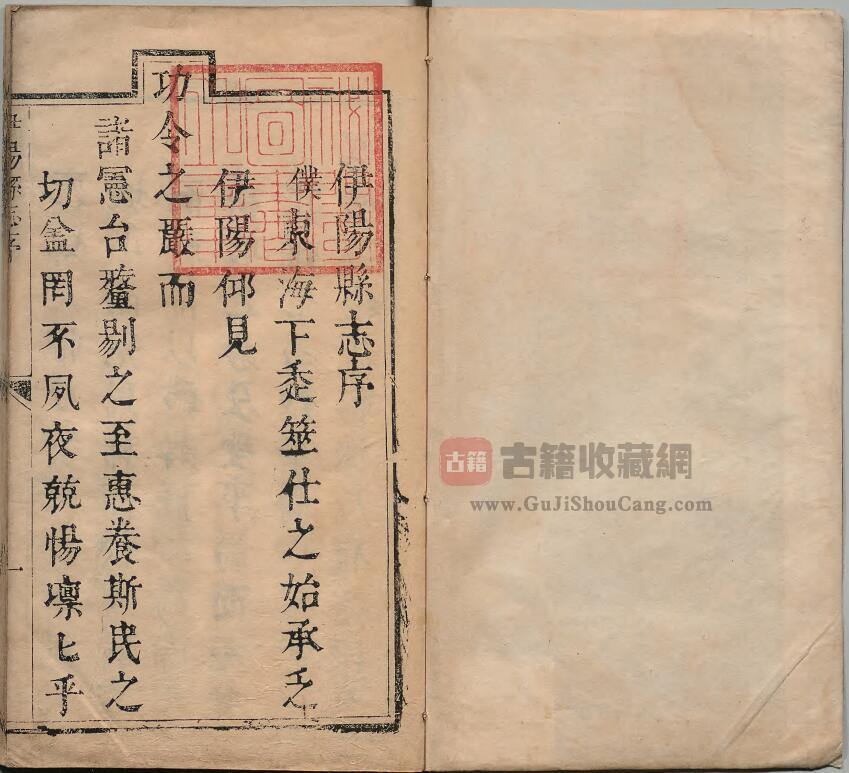 伊陽縣志序
僕東海下走筮仕之始承乏
伊陽仰見
功令之嚴而
諸憲台釐剔之至惠養斯民之
切益罔不夙夜兢惕凛匕乎
伊陽縣志序
一
古籍
古籍收藏網
www.GuJiShouCang.com